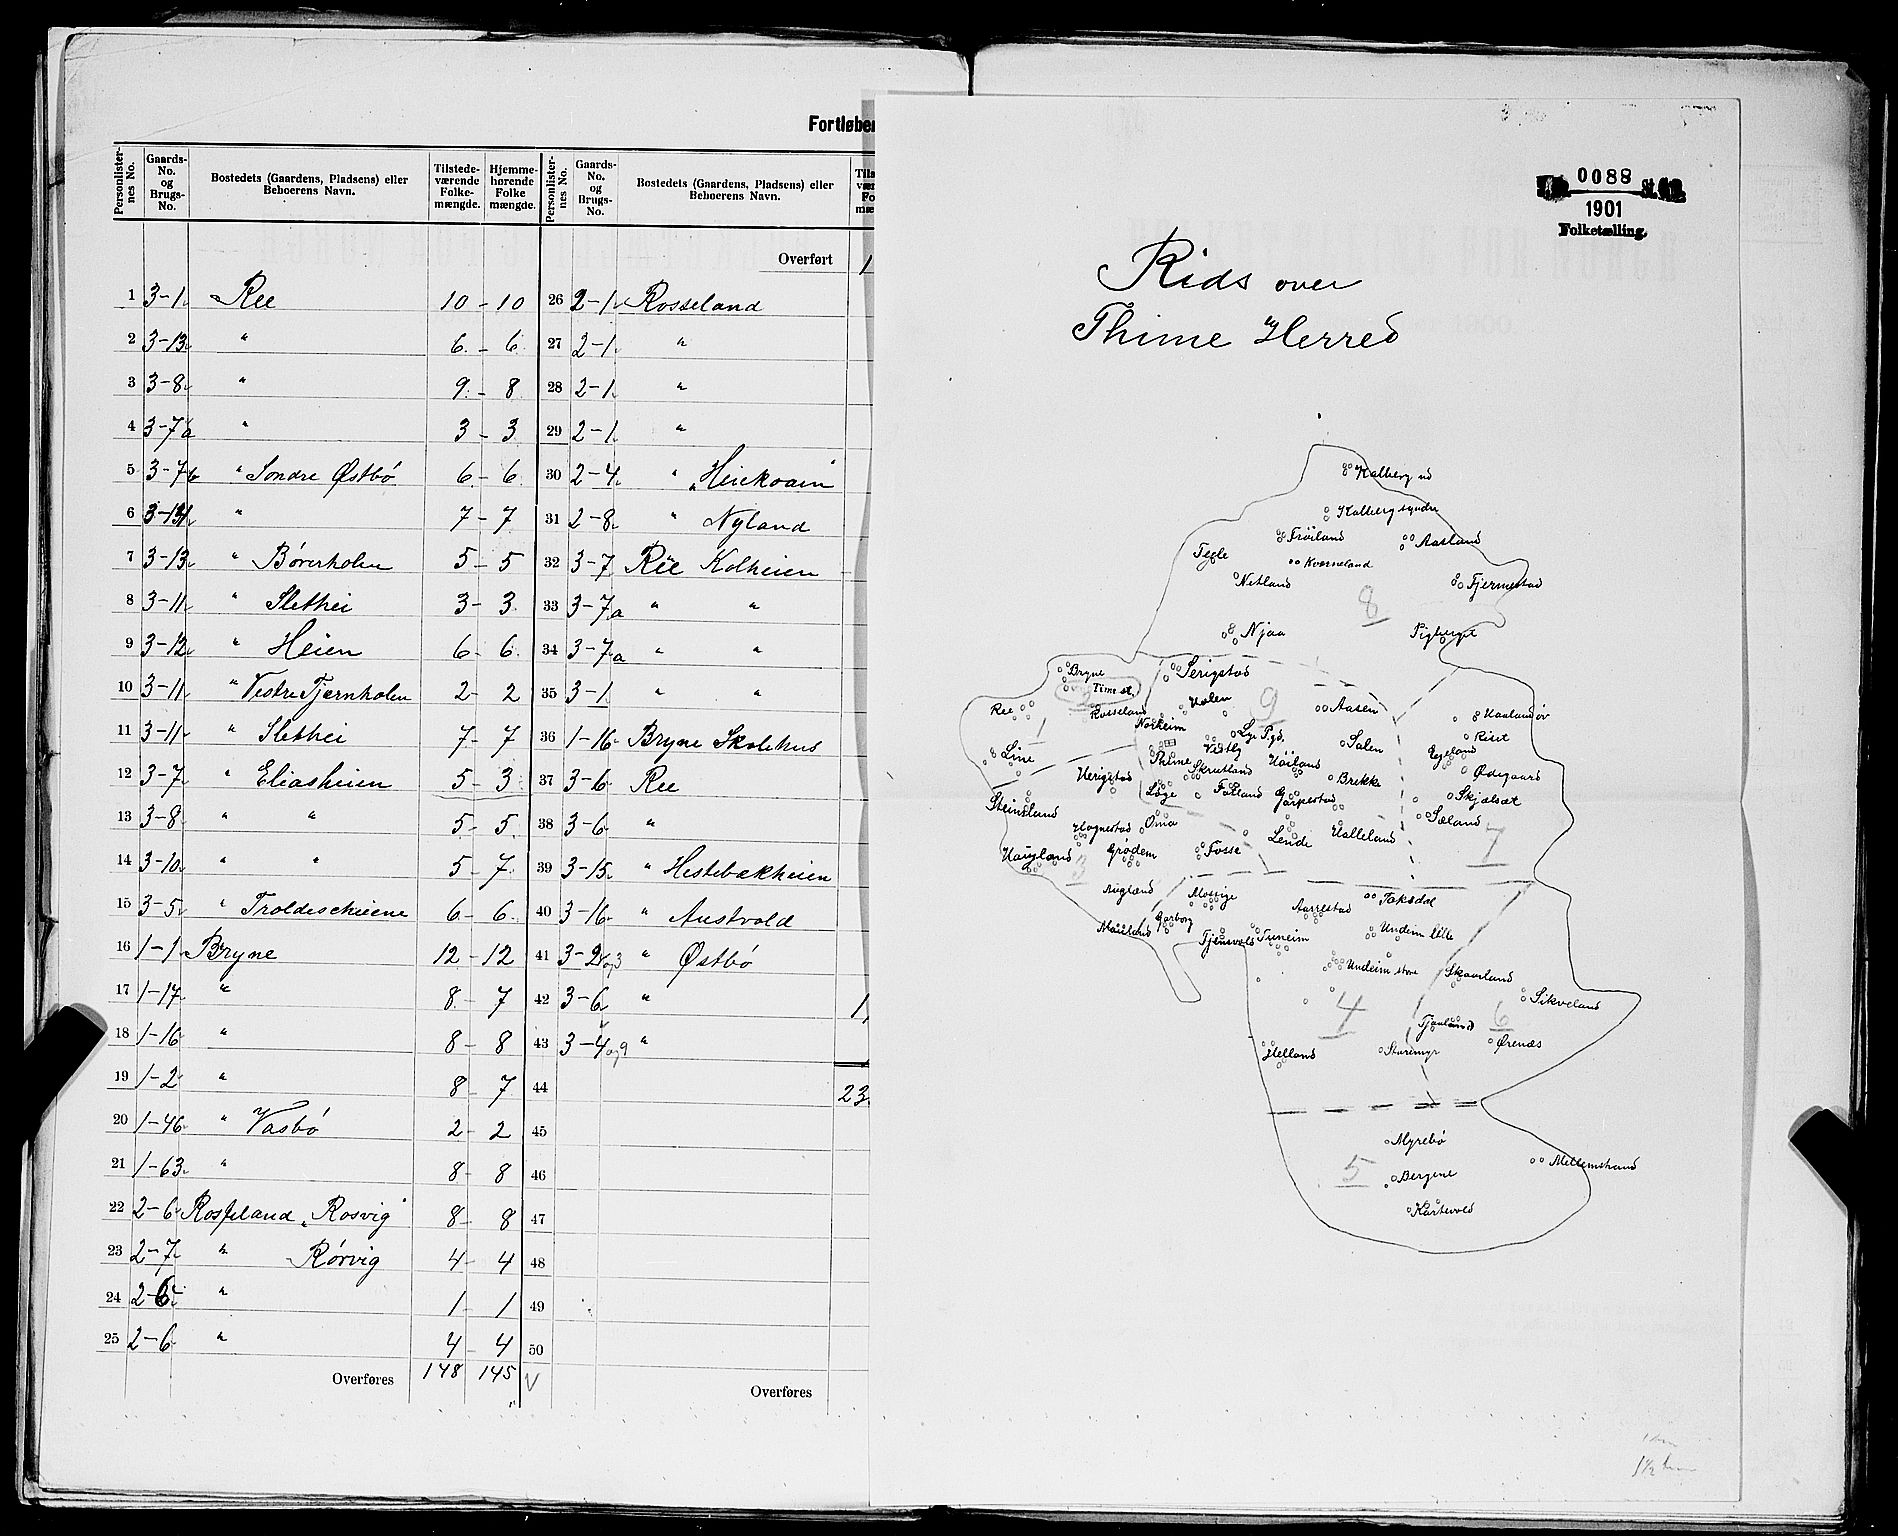 Fortløbe
Personlisternes No. Gaards-No. og Brugs-No. Bostedets (Gaardens, Pladsens) eller Beboerens Navn. Tilstedeværende Folkemængde. Hjemmehørende Folkemængde. Personlisternes No. Gaards-No. og Brugs-No. Bostedets (Gaardens, Pladsens) eller Beboerens Navn.
Overført
1 3-1 Ree 10 - 10 26 2-1 Rosseland
2 3-13 " 6 - 6 27 2-1 "
3 3-8 " 9 - 8 28 2-1 "
4 3-7a " 3 - 3 29 2-1 "
5 3-7b " Søndre Østbö 6 - 6 30 2-4 " "Heiekvam"
6 " 7 - 7 31 2-8 " Nyland
7 3-13 " 5 - 5 32 3-7 Ree Kolheien
8 3-11 " Slethei 3 - 3 33 3-7a " "
9 3-12 " Heien 6 - 6 34 3-7a " "
10 3-11 " Vestre Tjernholen 2 - 2 35 3-1 " "
11 3-11 " Slethei 7 - 7 36 1-16 Bryne Skolehus
12 3-7 " Eliasheien 5 - 3 37 3-6 Ree
13 3-8 " " 5 - 5 38 3-6 "
14 3-10 " " 5 - 7 39 3-15 " Hestebakheien
15 3-5 " 6 - 6 40 3-16 " Austvold
16 1-1 Bryne 12 - 12 41 3-2og3 " Østbö
17 1-17 " 8 - 7 42 3-6 "
18 1-16 " 8 - 8 43 3-4og9 "
19 1-2 " 8 - 7 44 23
20 1-46 " Vasbö 2 - 2 45
21 1-63 " 8 - 8 46
22 2-6 Rosseland "Rosvig" 8 - 8 47
23 2-7 " Rörvig 4 - 4 48
24 " 1 - 1 49
25 2-6 " 4 - 4 50
Overføres 148 145 V Overføres
0088
1901
Folketælling.
Rids over
Thime Herred
Kalberg nd
Kalberg syndre
Fröiland
Aasland
Tegle
Kverneland
Netland
Tjermestad
8
Njaa
Bryne
Serigstad
Time st.
Rosseland
Ree
1
Norheim
9
Aasen
Rist
Lye Pgd.
Salen
Egeland
Line
Thime
Skretland
Höiland
Ødegaard
Herigstad
Brekke
Steinsland
Löge
Fotland
Garpestad
Skjælset
Sæland
Hognestad
Oma
Lende
Halleland
7
Haugland
Grödem
Fosse
3
Auglænd
Mossige
Taksdal
Garborg
Aarrestad
Undeim lille
Tuneim
Undeim store
Skaarland
Sikveland
4
6
Tjaaland
Ørenæs
Helland
Storemyr
Myrebö
5
Bergene
Mellemstrand
Kartevold